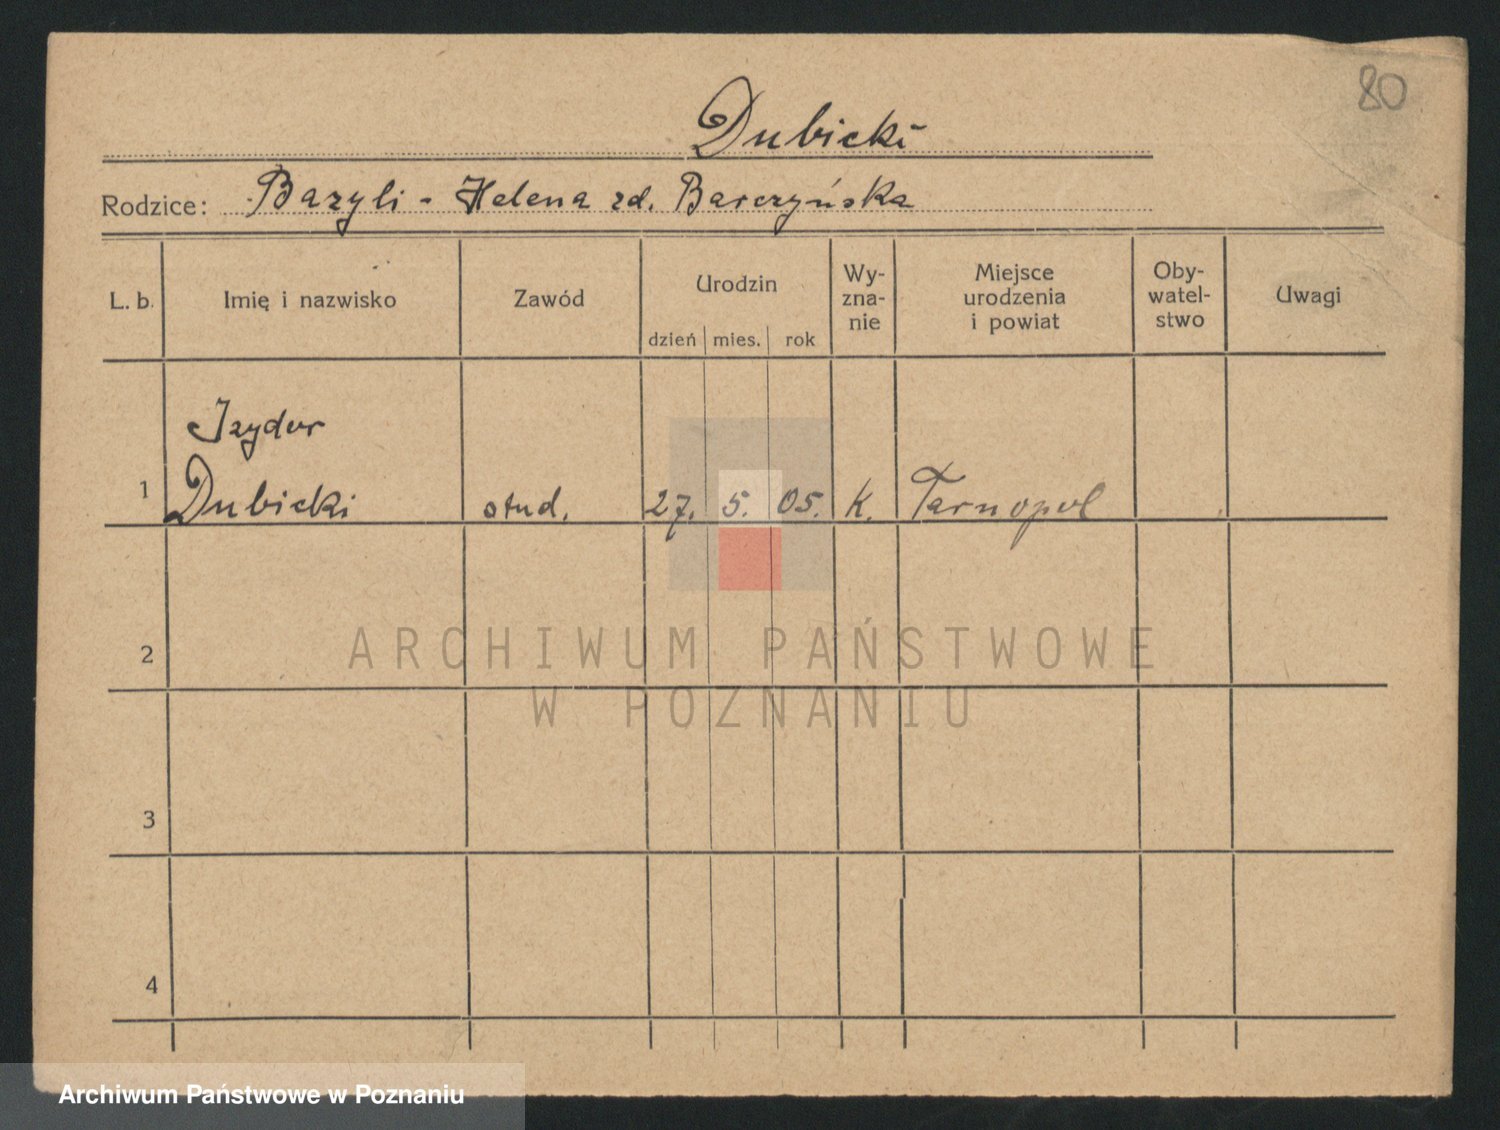 80
Dubicki
Rodzice: Bazyli - Helena zd. Barczyńska
L. b. Imię i nazwisko Zawód Urodzin Wy-zna-nie Miejsce urodzenia i powiat Oby-watel-stwo Uwagi
dzień mies. rok
Izydor
1 Dubicki stud. 27. 5. 05. k. Tarnopol
2
ARCHIWUM PAŃSTWOWE
W POZNANIU
3
4
Archiwum Państwowe w Poznaniu